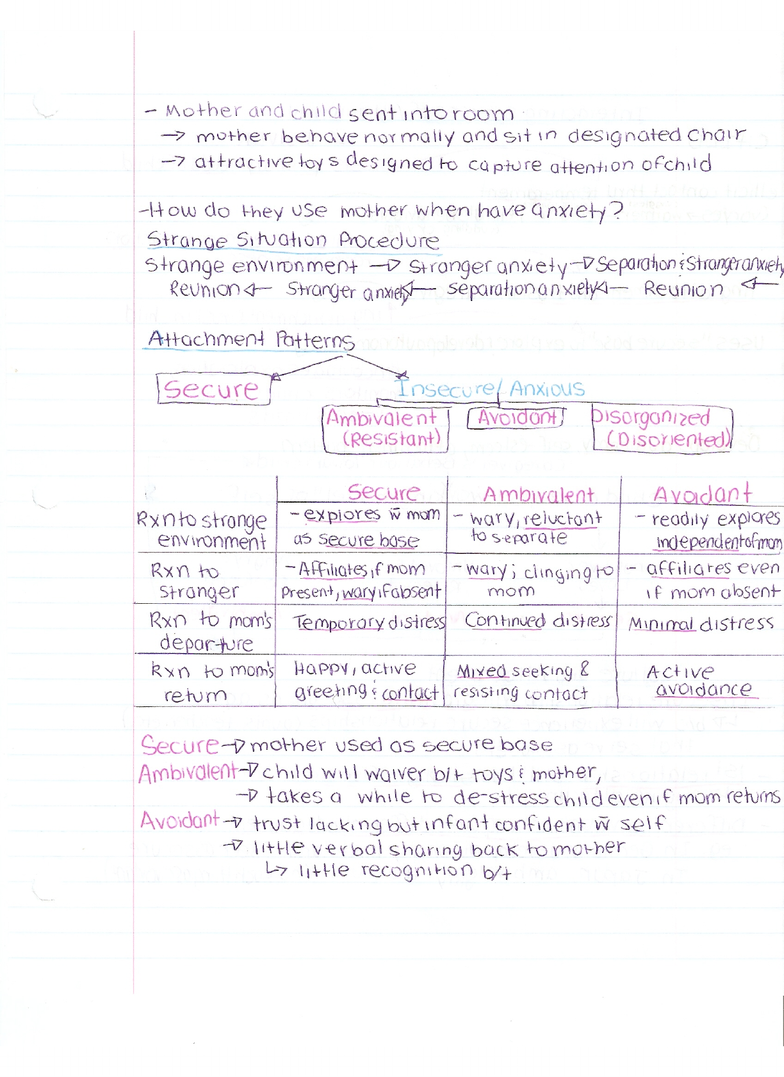 - Mother and child sent into room
→ mother behave normally and sit in designated chair
→ attractive toys designed to capture attention of child
-How do they use mother when have anxiety?
Strange Situation Procedure
Strange environment → Stranger anxiety → Separation & Stranger anxiety
Reunion ← Stranger anxiety ← separation anxiety ← Reunion ←
Attachment Patterns
Secure Insecure/Anxious
Ambivalent (Resistant) Avoidant Disorganized (Disoriented)
Secure Ambivalent Avoidant
Rxn to strange environment - explores w̄ mom as secure base - wary, reluctant to separate - readily explores independent of mom
Rxn to stranger - Affiliates, if mom present, wary if absent - wary; clinging to mom - affiliates even if mom absent
Rxn to mom's departure Temporary distress Continued distress Minimal distress
Rxn to mom's return Happy, active greeting & contact Mixed seeking & resisting contact Active avoidance
Secure → mother used as secure base
Ambivalent → child will waiver b/t toys & mother,
→ takes a while to de-stress child even if mom returns
Avoidant → trust lacking but infant confident w̄ self
→ little verbal sharing back to mother
↳ little recognition b/t